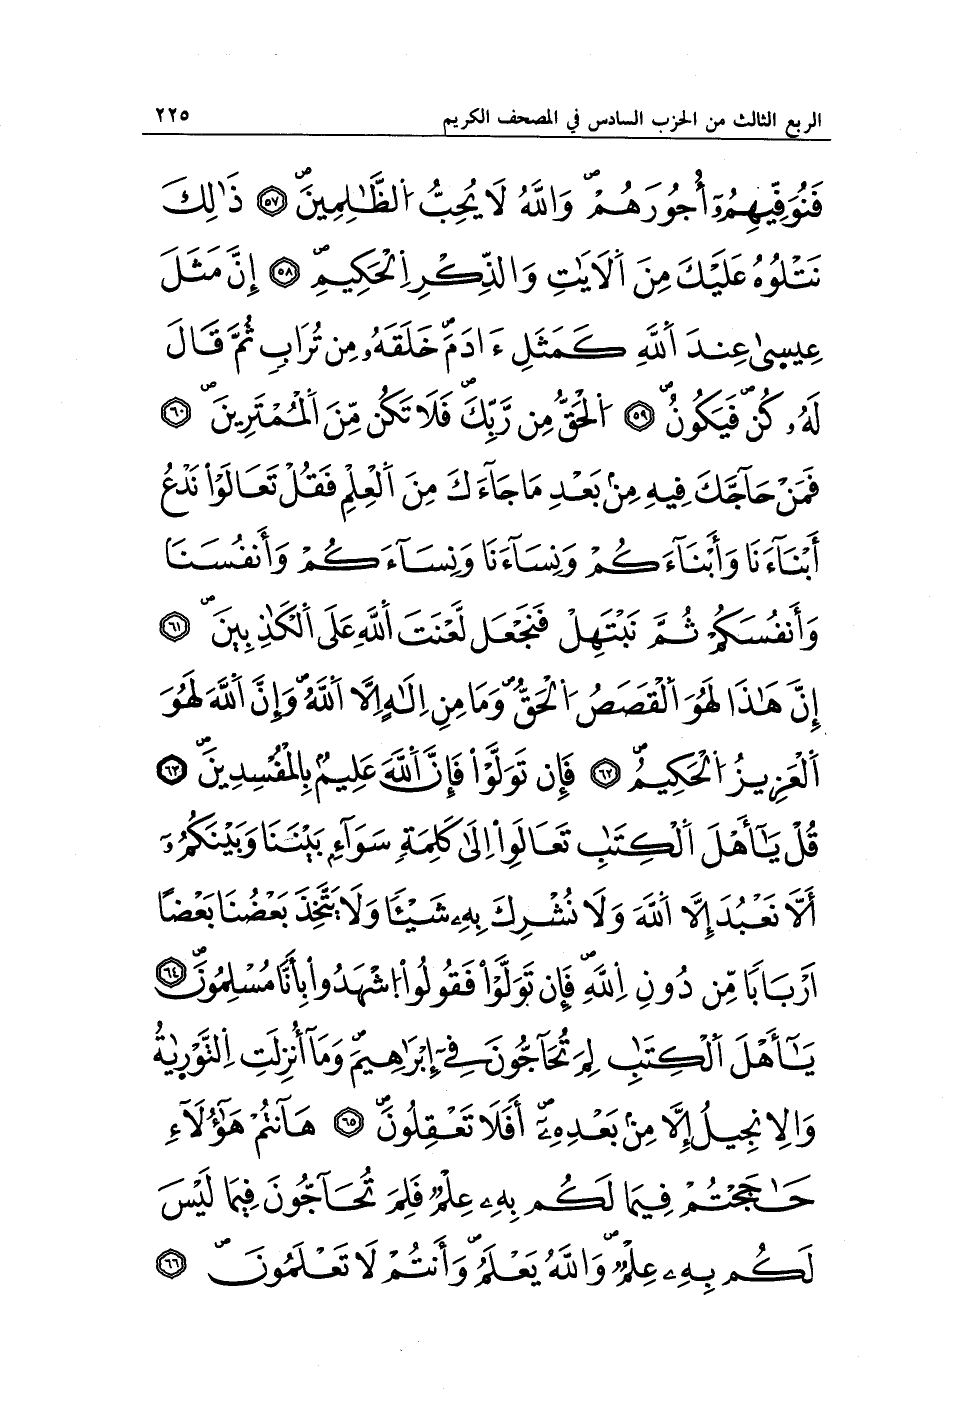 الربع الثالث من الحزب السادس في المصحف الكريم ٢٢٥
فَنُوَفِّيهِمُۥٓ أُجُورَهُمْ ۖ وَاللَّهُ لَا يُحِبُّ اَ۬لظَّٰلِمِينَ ۖ ٥٧ ذَٰلِكَ
نَتْلُوهُ عَلَيْكَ مِنَ اَ۬لَايَٰتِ وَالذِّكْرِ اِ۬لْحَكِيمِ ۖ ٥٨ إِنَّ مَثَلَ
عِيسىٰ عِندَ اَ۬للَّهِ كَمَثَلِ ءَادَمَ ۖ خَلَقَهُۥ مِن تُرَابٍ ثُمَّ قَالَ
لَهُۥ كُن ۖ فَيَكُونُ ۖ ٥٩ اَ۬لْحَقُّ مِن رَّبِّكَ ۖ فَلَا تَكُن مِّنَ اَ۬لْمُمْتَرِينَ ۖ ٦٠
فَمَنْ حَآجَّكَ فِيهِ مِنۢ بَعْدِ مَا جَآءَكَ مِنَ اَ۬لْعِلْمِ فَقُلْ تَعَالَوْاْ نَدْعُ
أَبْنَآءَنَا وَأَبْنَآءَكُمْ وَنِسَآءَنَا وَنِسَآءَكُمْ وَأَنفُسَنَا
وَأَنفُسَكُمْ ثُمَّ نَبْتَهِلْ فَنَجْعَل لَّعْنَتَ اَ۬للَّهِ عَلَى اَ۬لْكَٰذِبِينَ ۖ ٦١
إِنَّ هَٰذَا لَهُوَ اَ۬لْقَصَصُ اُ۬لْحَقُّ ۖ وَمَا مِنِ اِلَٰهٍ اِلَّا اَ۬للَّهُ ۖ وَإِنَّ اَ۬للَّهَ لَهُوَ
اَ۬لْعَزِيزُ اُ۬لْحَكِيمُ ۖ ٦٢ فَإِن تَوَلَّوْاْ فَإِنَّ اَ۬للَّهَ عَلِيمٌۢ بِالْمُفْسِدِينَ ۖ ٦٣
قُلْ يَٰٓأَهْلَ اَ۬لْكِتَٰبِ تَعَالَوِاْ اِلَىٰ كَلِمَةٍ سَوَآءِۢ بَيْنَنَا وَبَيْنَكُمُۥٓ
أَلَّا نَعْبُدَ إِلَّا اَ۬للَّهَ وَلَا نُشْرِكَ بِهِۦ شَيْـًٔا وَلَا يَتَّخِذَ بَعْضُنَا بَعْضًا
اَرْبَابًا مِّن دُونِ اِ۬للَّهِ ۖ فَإِن تَوَلَّوْاْ فَقُولُواْ اُ۪شْهَدُواْ بِأَنَّا مُسْلِمُونَ ۖ ٦٤
يَٰٓأَهْلَ اَ۬لْكِتَٰبِ لِمَ تُحَآجُّونَ فِےٓ إِبْرَٰهِيمَ ۖ وَمَآ أُنزِلَتِ اِ۬لتَّوْرِيٰةُ
وَالِانجِيلُ إِلَّا مِنۢ بَعْدِهِۦٓ ۖ أَفَلَا تَعْقِلُونَ ۖ ٦٥ هَآنتُمْ هَٰٓؤُلَآءِ
حَٰجَجْتُمْ فِيمَا لَكُم بِهِۦ عِلْمٌ ۖ فَلِمَ تُحَآجُّونَ فِيمَا لَيْسَ
لَكُم بِهِۦ عِلْمٌ ۖ وَاللَّهُ يَعْلَمُ ۖ وَأَنتُمْ لَا تَعْلَمُونَ ۖ ٦٦